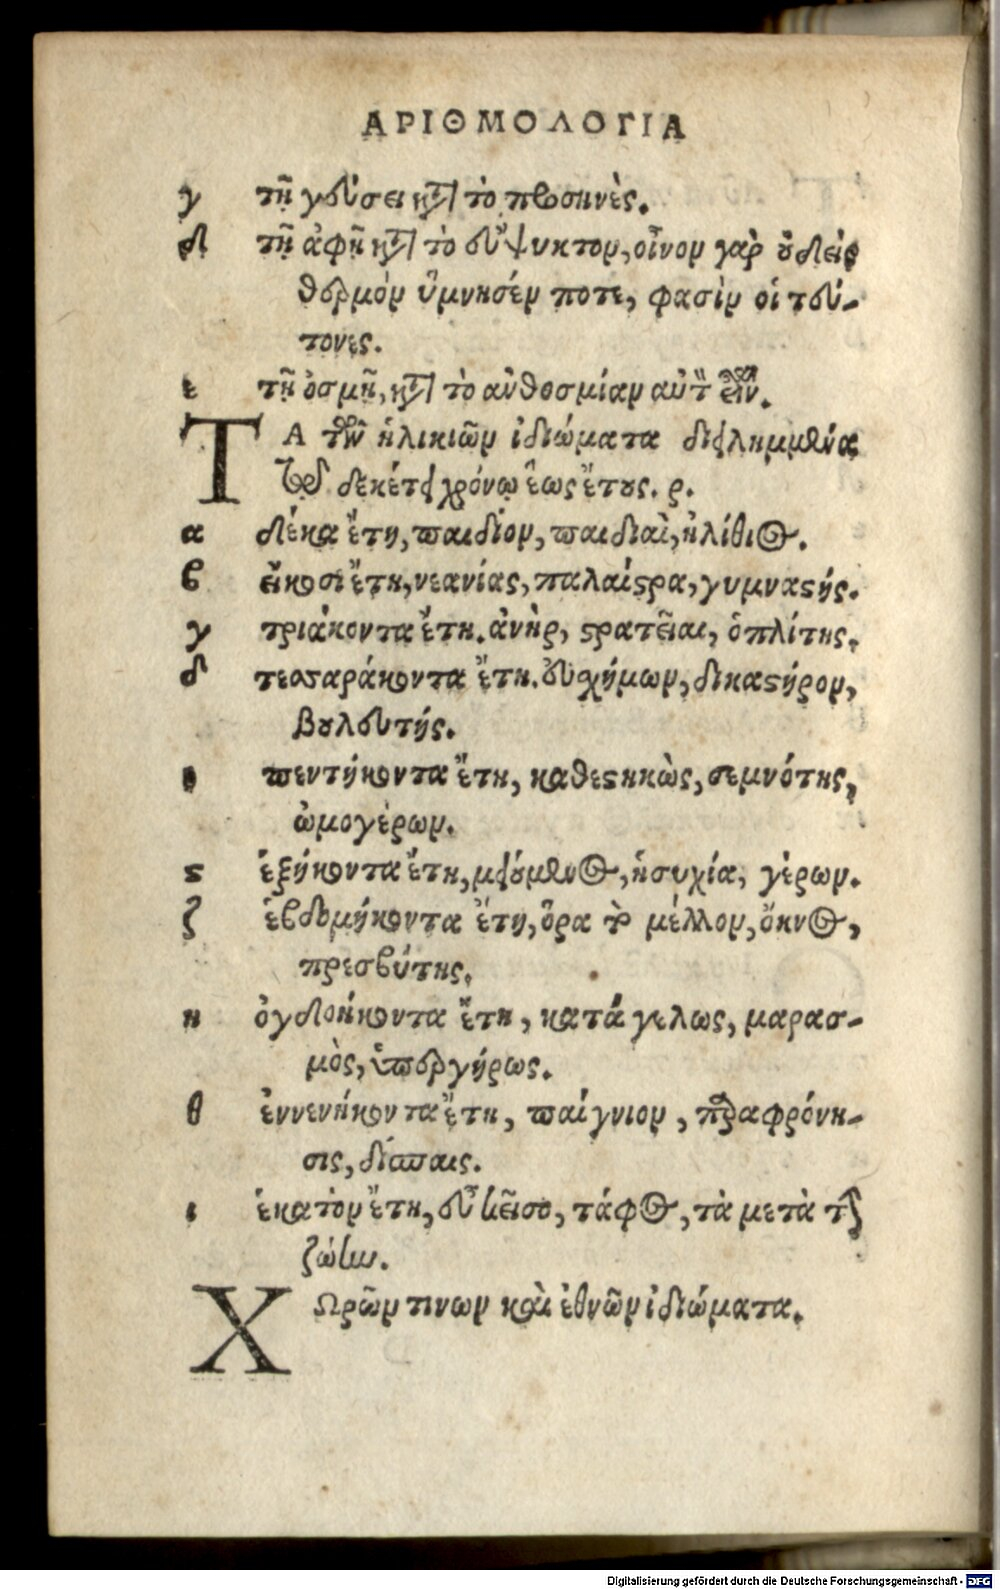 ΑΡΙΘΜΟΛΟΓΙΑ
γ τῇ γεύσει κτ τὸ προσηνὲς.
δ τῇ ἁφῇ κτ τὸ εὔψυκτον, οἶνον γὰρ ȣ̓δεὶς
θερμὸν ὕμνησέν ποτε, φασὶν οἱ τεύ-
τονες.
ε τῇ ὀσμῇ, κτ τὸ ἀνθοσμίαν αὐτ εἶν.
ΤΑ τῶν ἡλικιῶν ἰδιώματα διειλημμένα
τῷ δεκέτει χρόνῳ ἕως ἔτȣς. ρ.
α δέκα ἔτη, παιδίον, παιδιαὶ, ἠλίθιος.
β εἴκοσι ἔτη, νεανίας, παλαίϛρα, γυμναϛής.
γ τριάκοντα ἔτη. ἀνὴρ, ϛρατεῖαι, ὁπλίτης,
δ τεσσαράκοντα ἔτη. εὐσχήμων, δικαϛήριον,
βȣλευτής.
ε πεντήκοντα ἔτη, καθεϛηκὼς, σεμνότης,
ὠμογέρων.
ϛ ἑξήκοντα ἔτη, ἡσυχία, γέρων.
ζ ἑβδομήκοντα ἔτη, ὅρα τὸ μέλλον, ὄκνος,
πρεσβύτης.
η ὀγδοήκοντα ἔτη, κατάγελως, μαρασ-
μὸς, ὑπεργήρως.
θ ἐννενήκοντα ἔτη, παίγνιον, παραφρόνη-
σις, δίσπαις.
ι ἑκατὸν ἔτη, εὖ κεῖσο, τάφος, τὰ μετὰ τ
ζώην.
ΧΩρῶν τινων καὶ ἐθνῶν ἰδιώματα.
Digitalisierung gefördert durch die Deutsche Forschungsgemeinschaft - DFG